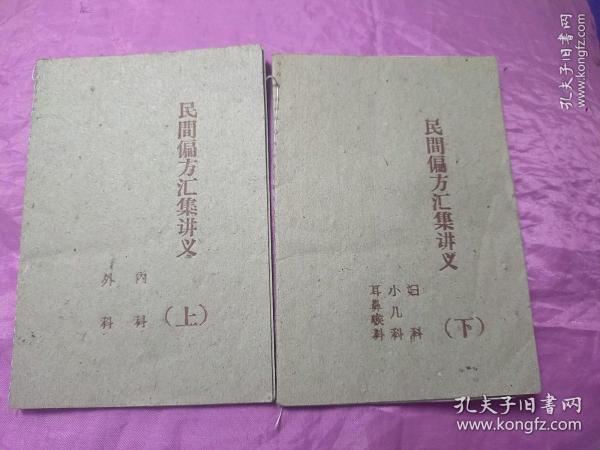 民間偏方汇集讲义
(上)
内科
外科
民間偏方汇集讲义
(下)
妇科
小儿科
耳鼻喉科
孔夫子旧书网
孔夫子旧书网
www.kongfz.com